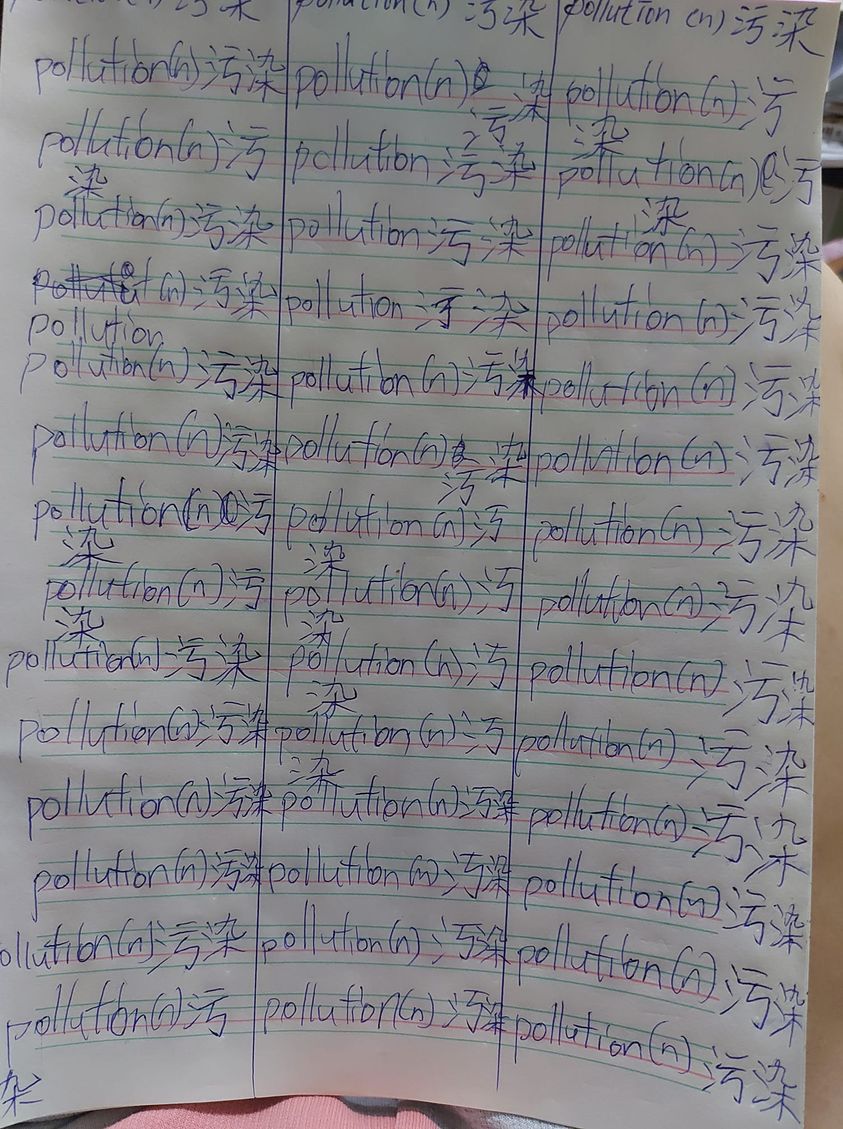 pollution (n) 污染 pollution (n) 污染
pollution(n) 污染 pollution(n) 污染 pollution(n) 污染
pollution(n) 污染 pollution 污染 pollution(n) 污染
pollution(n) 污染 pollution 污染 pollution(n) 污染
(n) 污染 pollution 污染 pollution(n) 污染
pollution
pollution(n) 污染 pollution(n) 污染 pollution(n) 污染
pollution(n) 污染 pollution(n) 污染 pollution(n) 污染
pollution(n) 污染 pollution(n) 污染 pollution(n) 污染
pollution(n) 污染 pollution(n) 污染 pollution(n) 污染
pollution(n) 污染 pollution(n) 污染 pollution(n) 污染
pollution(n) 污染 pollution(n) 污染 pollution(n) 污染
pollution(n) 污染 pollution(n) 污染 pollution(n) 污染
pollution(n) 污染 pollution(n) 污染 pollution(n) 污染
ollution(n) 污染 pollution(n) 污染 pollution(n) 污染
pollution(n) 污染 pollution(n) 污染 pollution(n) 污染